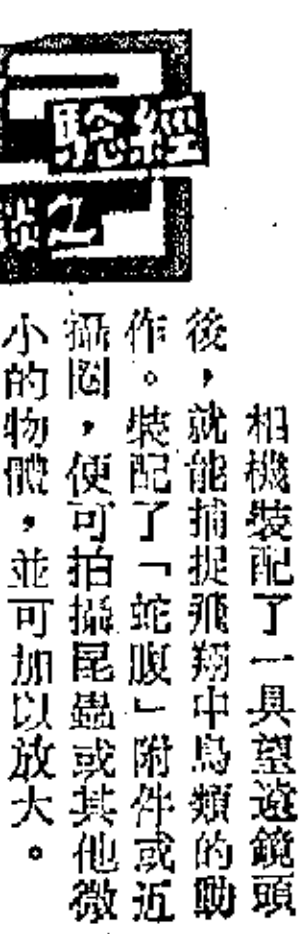 經驗
之
相機裝配了一具望遠鏡頭
後，就能捕捉飛翔中鳥類的動
作。裝配了「蛇腹」附件或近
攝圈，便可拍攝昆蟲或其他微
小的物體，並可加以放大。